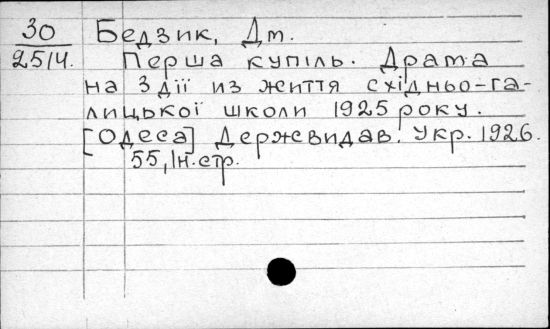 30
2514.
Бедзик, Дм.
Перша купіль. Драма
на 3 дії из життя східньо-га-
лицької школи 1925 року.
[Одеса] Держвидав. Укр. 1926.
55, Ін. стр.